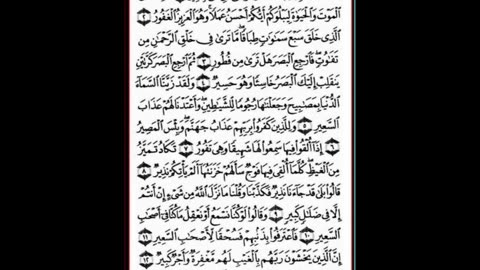 ٱلْمَوْتَ وَٱلْحَيَوٰةَ لِيَبْلُوَكُمْ أَيُّكُمْ أَحْسَنُ عَمَلًا وَهُوَ ٱلْعَزِيزُ ٱلْغَفُورُ ٢
ٱلَّذِى خَلَقَ سَبْعَ سَمَٰوَٰتٍ طِبَاقًا مَّا تَرَىٰ فِى خَلْقِ ٱلرَّحْمَٰنِ مِن
تَفَٰوُتٍ فَٱرْجِعِ ٱلْبَصَرَ هَلْ تَرَىٰ مِن فُطُورٍ ٣ ثُمَّ ٱرْجِعِ ٱلْبَصَرَ كَرَّتَيْنِ
يَنقَلِبْ إِلَيْكَ ٱلْبَصَرُ خَاسِئًا وَهُوَ حَسِيرٌ ٤ وَلَقَدْ زَيَّنَّا ٱلسَّمَآءَ
ٱلدُّنْيَا بِمَصَٰبِيحَ وَجَعَلْنَٰهَا رُجُومًا لِّلشَّيَٰطِينِ وَأَعْتَدْنَا لَهُمْ عَذَابَ
ٱلسَّعِيرِ ٥ وَلِلَّذِينَ كَفَرُوا۟ بِرَبِّهِمْ عَذَابُ جَهَنَّمَ وَبِئْسَ ٱلْمَصِيرُ
٦ إِذَآ أُلْقُوا۟ فِيهَا سَمِعُوا۟ لَهَا شَهِيقًا وَهِىَ تَفُورُ ٧ تَكَادُ تَمَيَّزُ
مِنَ ٱلْغَيْظِ كُلَّمَآ أُلْقِىَ فِيهَا فَوْجٌ سَأَلَهُمْ خَزَنَتُهَآ أَلَمْ يَأْتِكُمْ نَذِيرٌ ٨
قَالُوا۟ بَلَىٰ قَدْ جَآءَنَا نَذِيرٌ فَكَذَّبْنَا وَقُلْنَا مَا نَزَّلَ ٱللَّهُ مِن شَىْءٍ إِنْ أَنتُمْ
إِلَّا فِى ضَلَٰلٍ كَبِيرٍ ٩ وَقَالُوا۟ لَوْ كُنَّا نَسْمَعُ أَوْ نَعْقِلُ مَا كُنَّا فِىٓ أَصْحَٰبِ
ٱلسَّعِيرِ ١٠ فَٱعْتَرَفُوا۟ بِذَنۢبِهِمْ فَسُحْقًا لِّأَصْحَٰبِ ٱلسَّعِيرِ ١١
إِنَّ ٱلَّذِينَ يَخْشَوْنَ رَبَّهُم بِٱلْغَيْبِ لَهُم مَّغْفِرَةٌ وَأَجْرٌ كَبِيرٌ ١٢